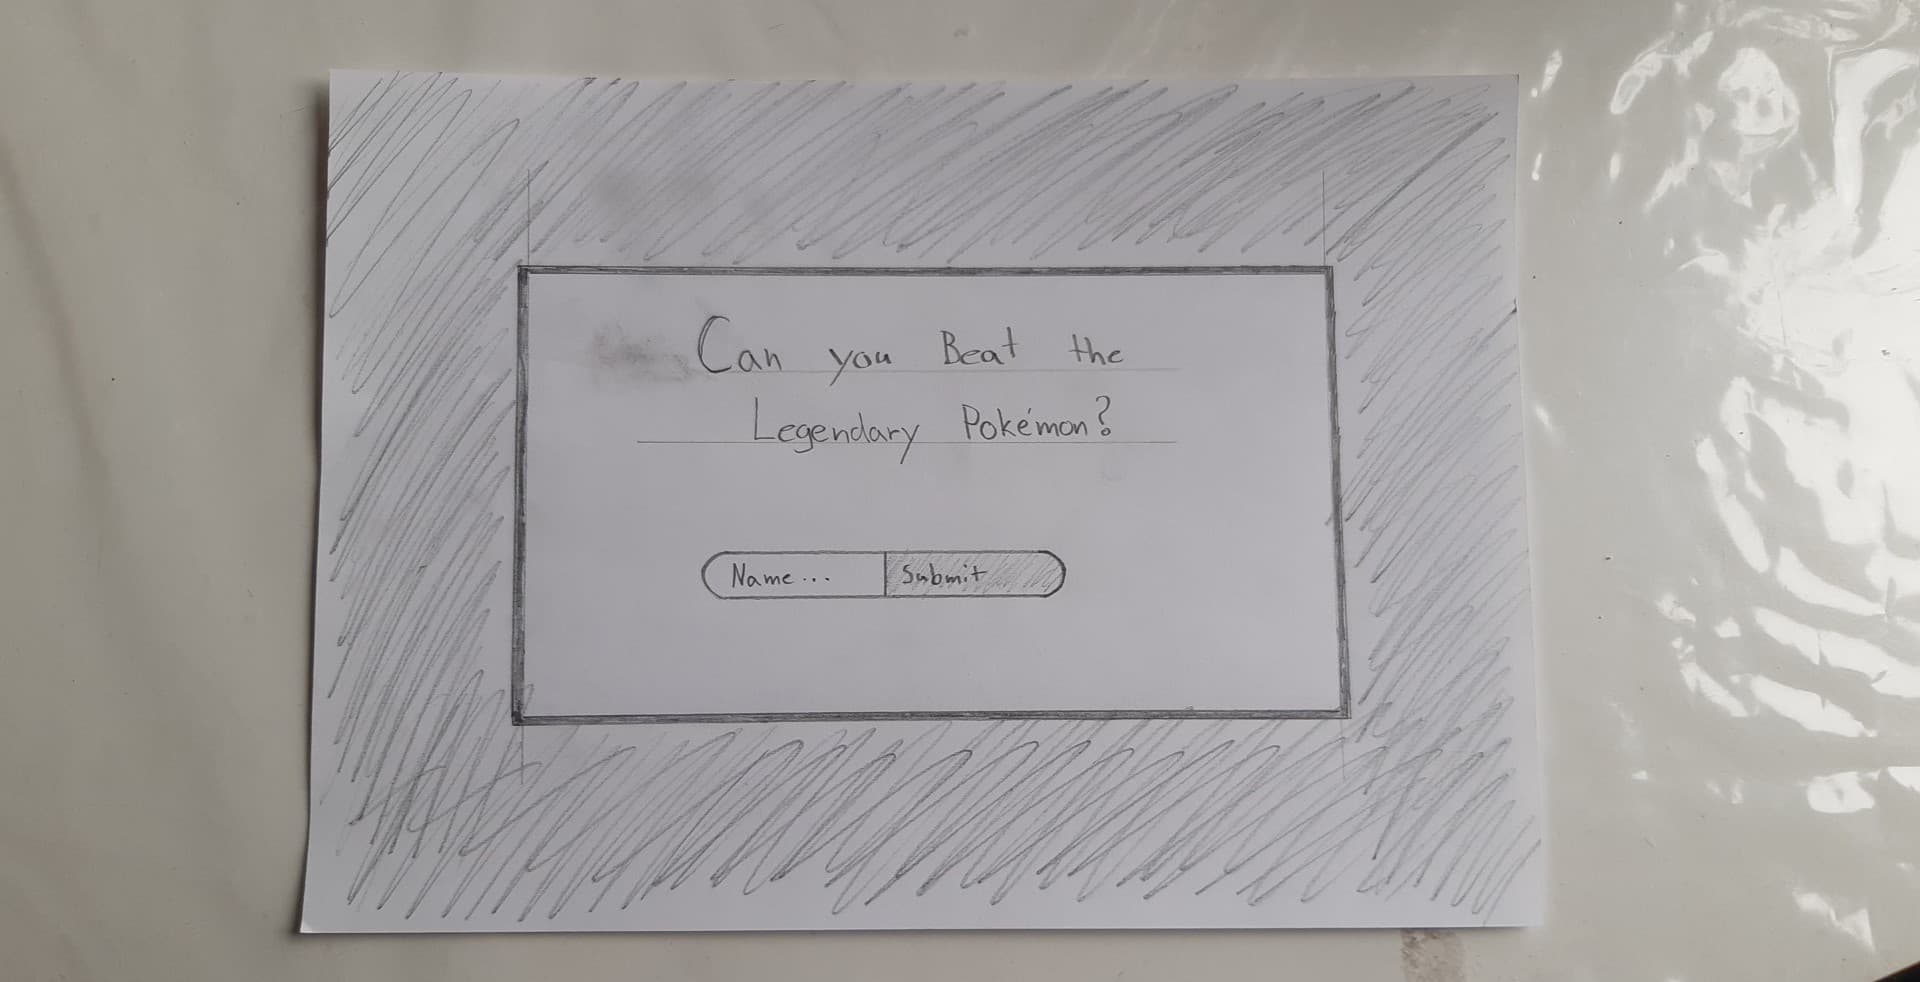 Can you Beat the
Legendary Pokémon?
Name... Submit